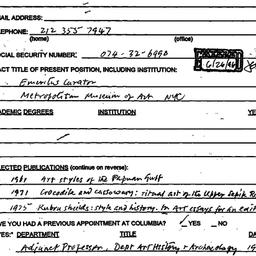 MAIL ADDRESS:
TELEPHONE: 212 355 7947
(home) (office)
SOCIAL SECURITY NUMBER:
EXACT TITLE OF PRESENT POSITION, INCLUDING INSTITUTION:
Emeritus Curator
Metropolitan Museum of Art NYC
ACADEMIC DEGREES INSTITUTION YE
SELECTED PUBLICATIONS (continue on reverse):
1961 Art styles of the Papuan Gulf
1971 Crocodile and cassowary: ritual art of the Upper Sepik R
1975 Kubru shields: style and history. In Art essays for an
HAVE YOU HAD A PREVIOUS APPOINTMENT AT COLUMBIA? YES NO
YES: DEPARTMENT TITLE DA
Adjunct Professor, Dept Art History & Archaeology 19